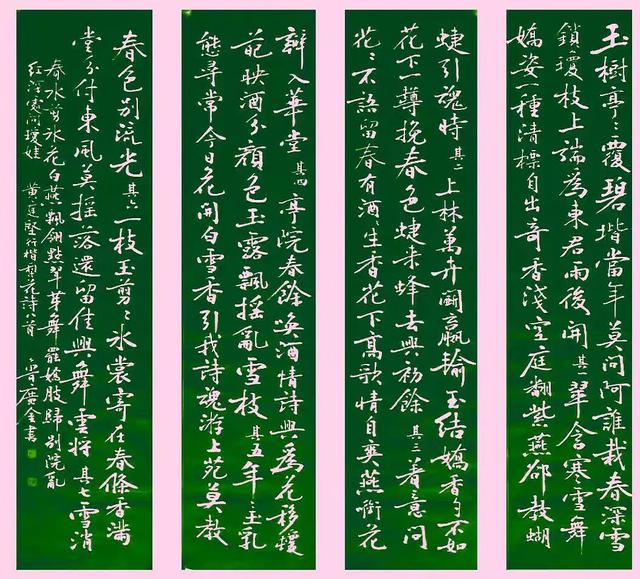 玉樹亭〻覆碧堦當年莫問阿誰栽春深雪
鎖瓊枝上端為東君雨後開 其一 翠含寒雪舞
嬌姿一種清標自出奇香淺空庭翻紫燕卻教蝴
蜨引魂時 其二 上林萬卉鬭贏輸玉結嬌香了不如
花下一尊挽春色蜨来蜂去興初餘 其三 着意問
花〻不語留春有酒生香花下高歌情自爽燕銜花
瓣入華堂 其四 亭院春餘喚酒情詩興為花移
葩映酒分顏色玉露飄摇亂雪枝 其五 年〻主乳
態尋常今日花開白雪香引我詩魂游上苑莫教
春色別流光 其六 一枝玉剪〻冰裳寄在春條香滿
堂分付東風莫摇落還留佳興舞雲將 其七 雪消
春水剪冰花白燕飄翎點翠華舞罷嬌肢歸別院亂
紅深處問瓊娃 黄庭堅行楷梨花詩首 曾廣金書